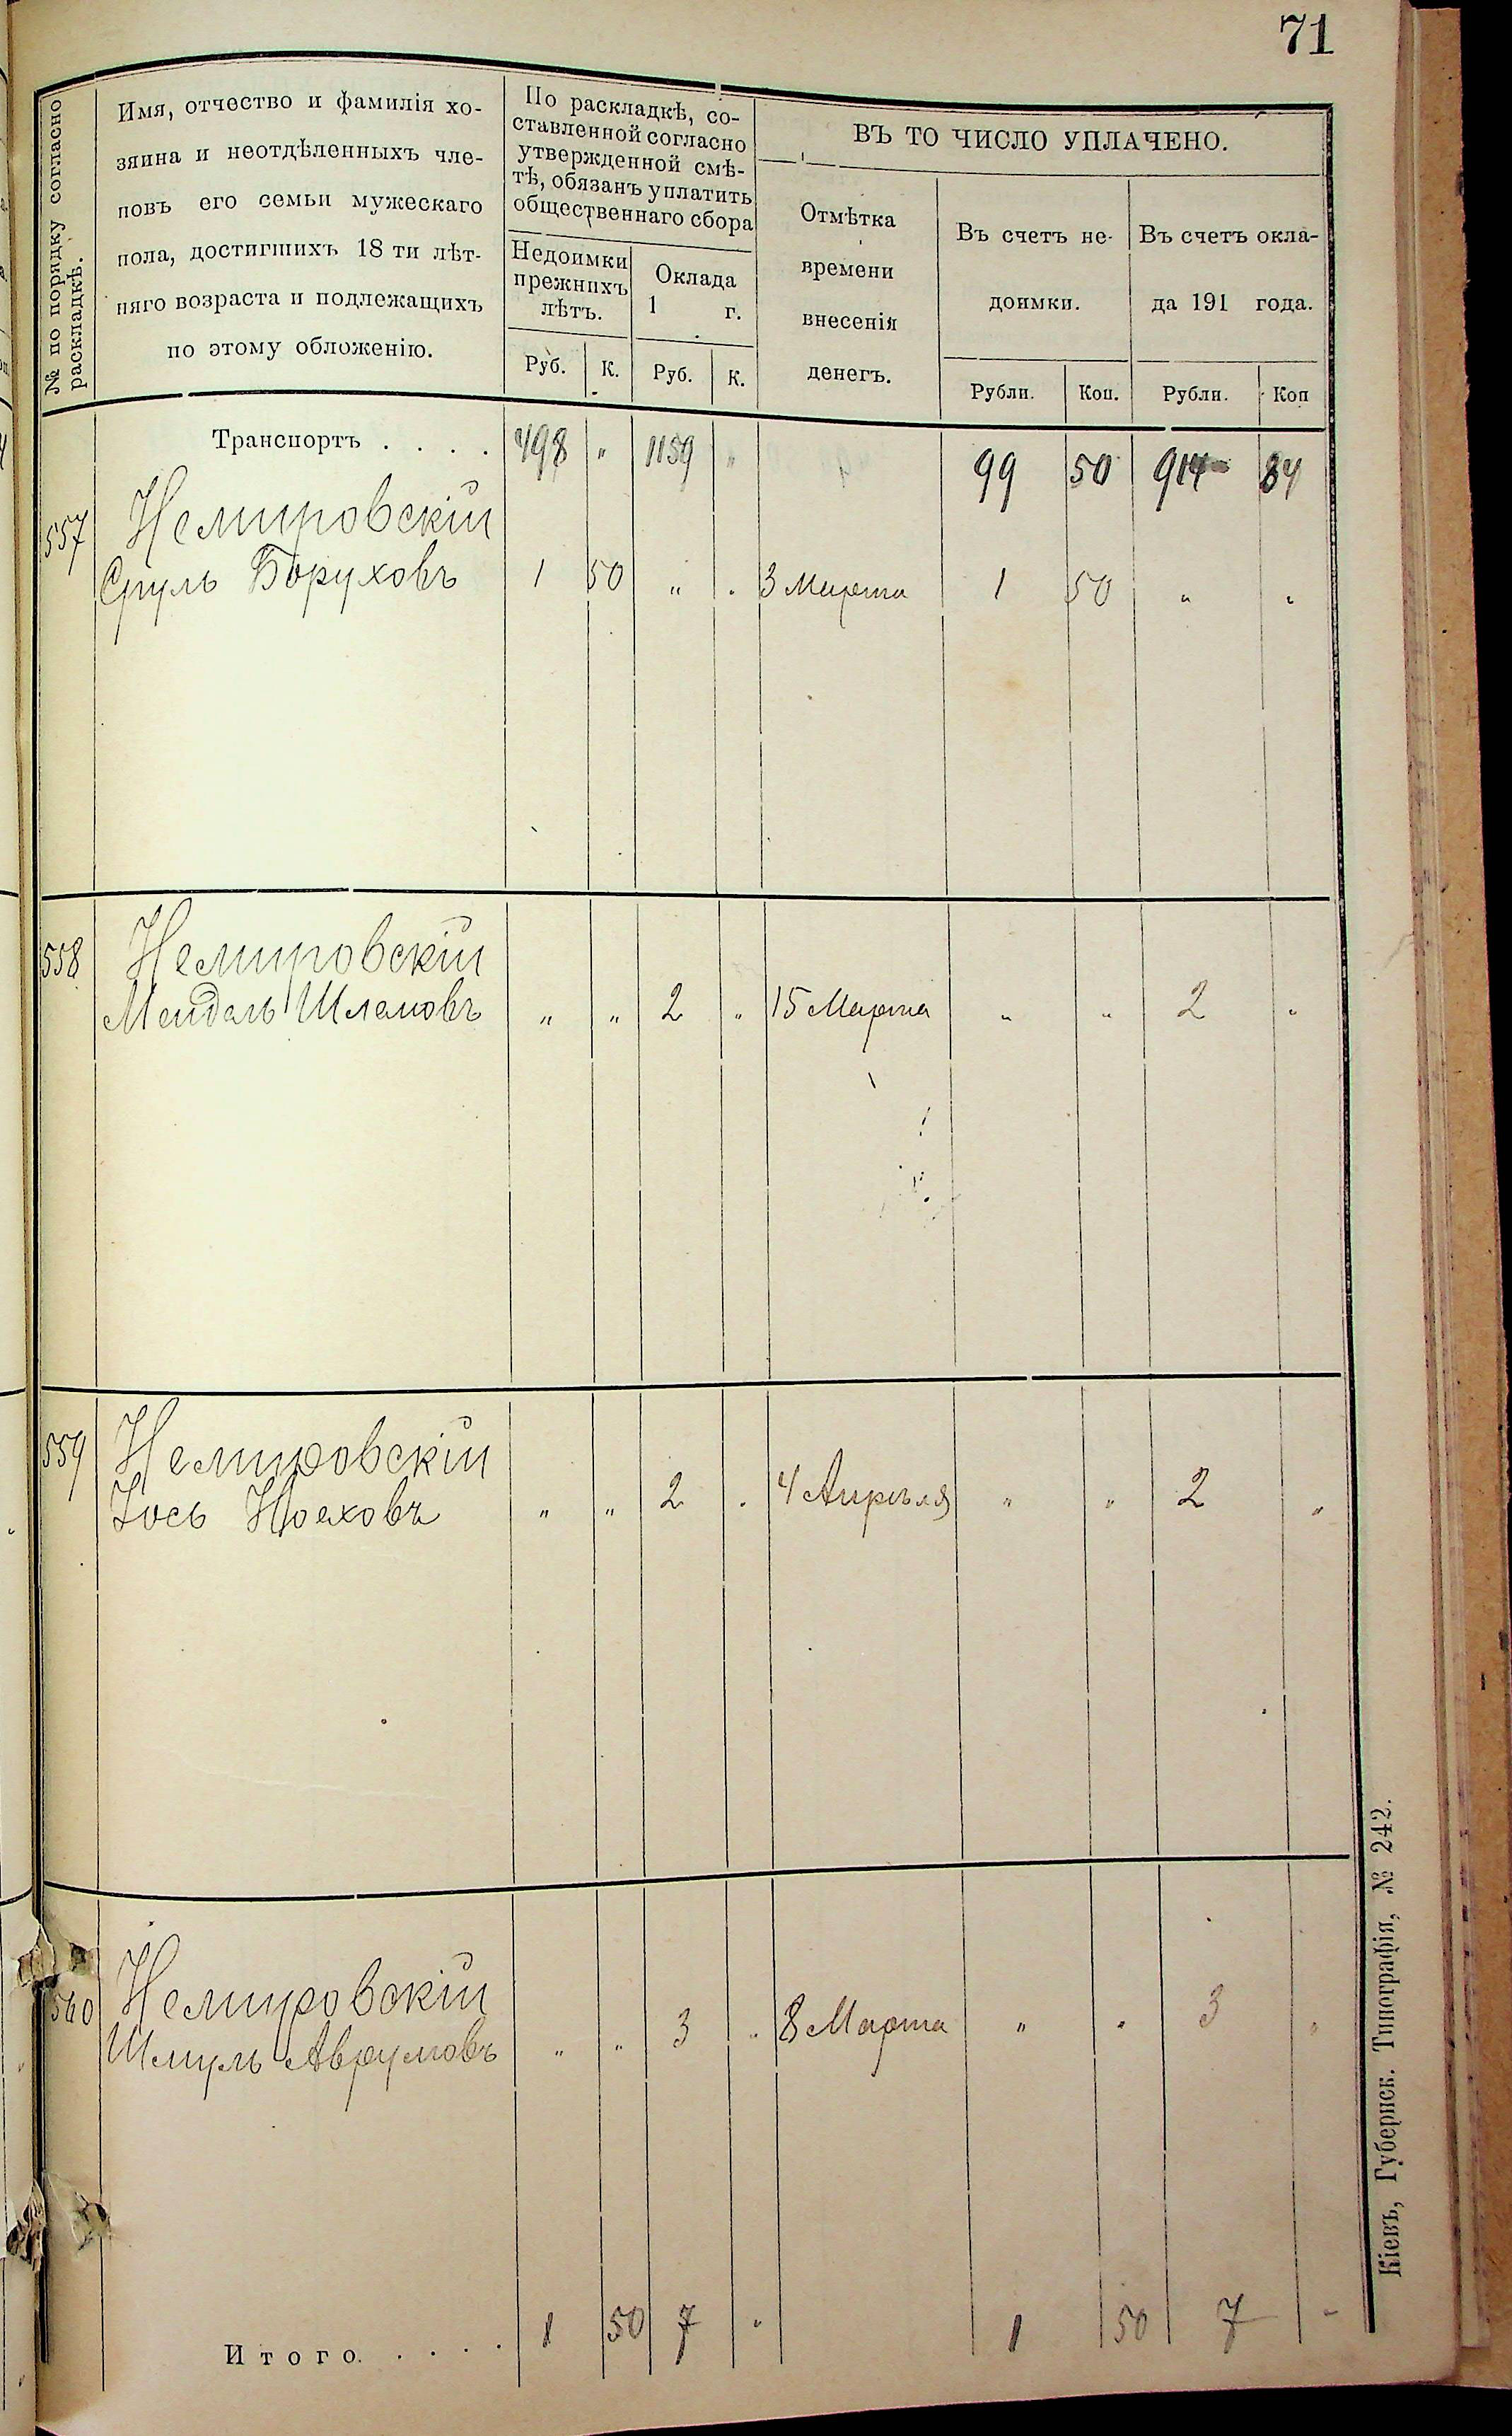 71
№ по порядку согласно
раскладкѣ.
Имя, отчество и фамилія хо-
зяина и неотдѣленныхъ чле-
новъ его семьи мужескаго
пола, достигшихъ 18 ти лѣт-
няго возраста и подлежащихъ
по этому обложенію.
По раскладкѣ, со-
ставленной согласно
утвержденной смѣ-
тѣ, обязанъ уплатить
общественнаго сбора
Недоимки
прежнихъ
лѣтъ.
Оклада
1 г.
Руб. К. Руб. К.
ВЪ ТО ЧИСЛО УПЛАЧЕНО.
Отмѣтка
времени
внесенія
денегъ.
Въ счетъ не-
доимки.
Въ счетъ окла-
да 191 года.
Рубли. Коп. Рубли. Коп
Транспортъ . . . . 498 " 1159 " 99 50 914 84
557 Немировскій
Сруль Боруховъ 1 50 " . 3 Марта 1 50 " "
558 Немировскій
Мендель Шлемовъ " " 2 " 15 Марта " " 2 "
559 Немировскій
Іось Ноеховъ " " 2 . 4 Апрѣля " " 2 "
560 Немировскій
Шмуль Аврумовъ " " 3 " 8 Марта " " 3 "
Итого. . . . . 1 50 7 " 1 50 7 "
Кіевъ, Губернск. Типографія, № 242.